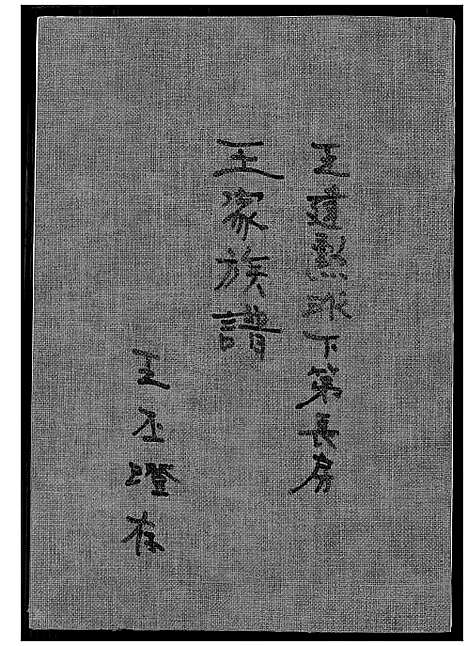 王建熙派下第長房
王家族譜
王丕澄存